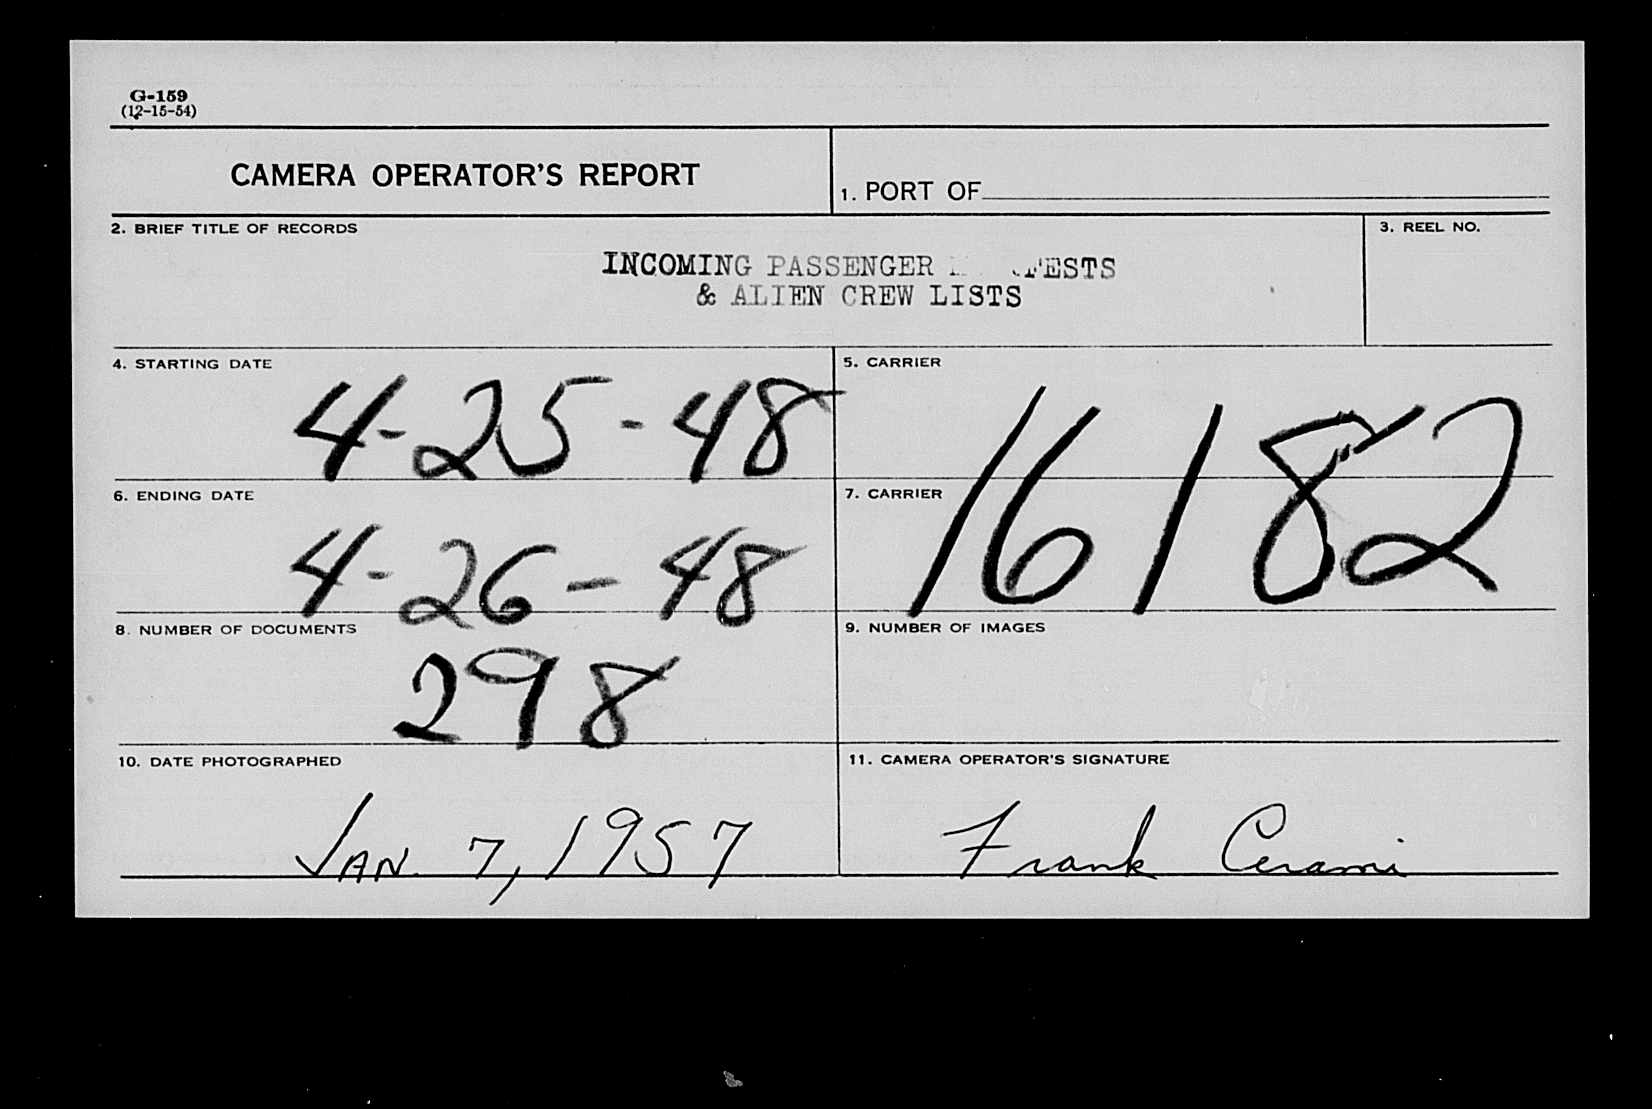 G-159
(12-15-54)
CAMERA OPERATOR'S REPORT
1. PORT OF
2. BRIEF TITLE OF RECORDS
3. REEL NO.
INCOMING PASSENGER
& ALIEN CREW LISTS
4. STARTING DATE
4-25-48
5. CARRIER
16182
6. ENDING DATE
4-26-48
7. CARRIER
8. NUMBER OF DOCUMENTS
298
9. NUMBER OF IMAGES
10. DATE PHOTOGRAPHED
JAN. 7, 1957
11. CAMERA OPERATOR'S SIGNATURE
Frank Cerami